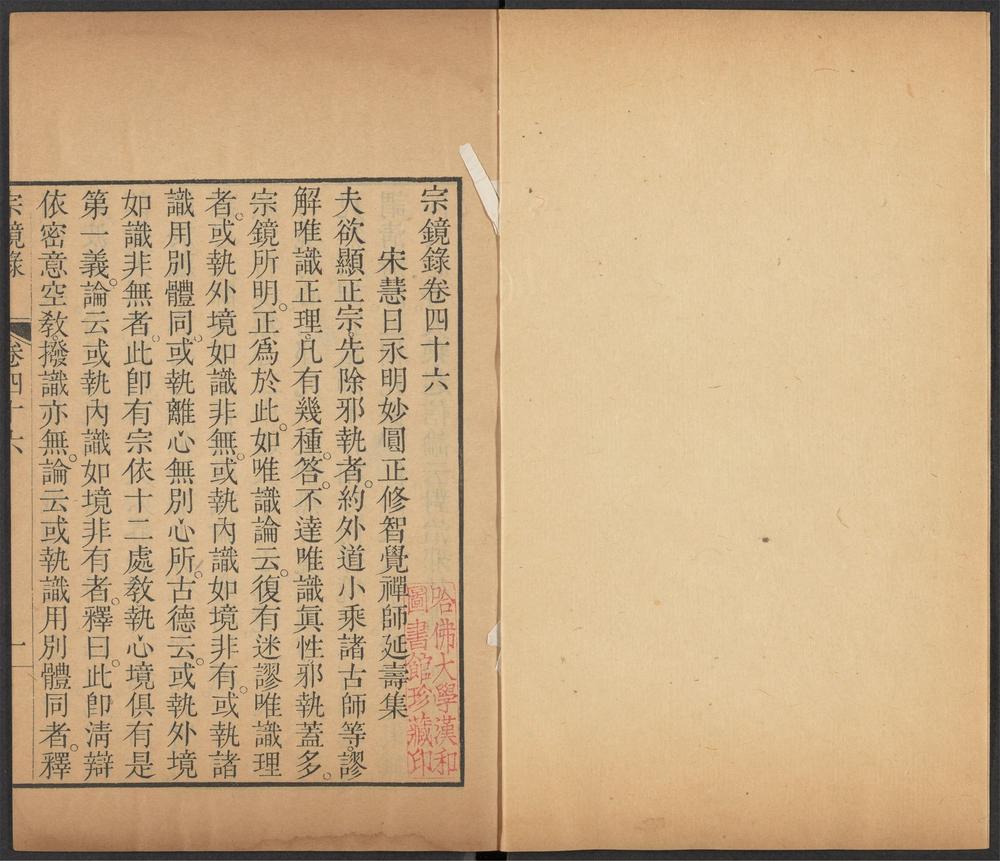 宗鏡錄卷四十六
宋慧日永明妙圓正修智覺禪師延壽集
夫欲顯正宗。先除邪執者。約外道小乘諸古師等。謬
解唯識正理。凡有幾種。答。不達唯識眞性邪執蓋多。
宗鏡所明。正爲於此。如唯識論云。復有迷謬唯識理
者。或執外境如識非無。或執內識如境非有。或執諸
識用別體同。或執離心無別心所。古德云。或執外境
如識非無者。此卽有宗依十二處敎執心境俱有是
第一義。論云或執內識如境非有者。釋曰。此卽淸辯
依密意空敎。撥識亦無。論云或執識用別體同者。釋
宗鏡錄 卷四十六 一
哈佛大學漢和
圖書館珍藏印